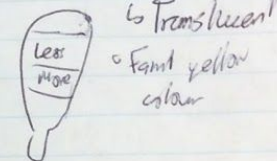 ↳ Translucent
Less
More
◦ Faint yellow
colour